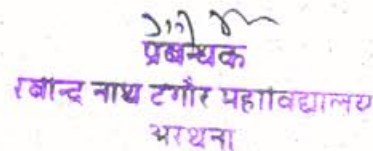 प्रबन्धक
रबीन्द्र नाथ टगौर महाविद्यालय
अरथना